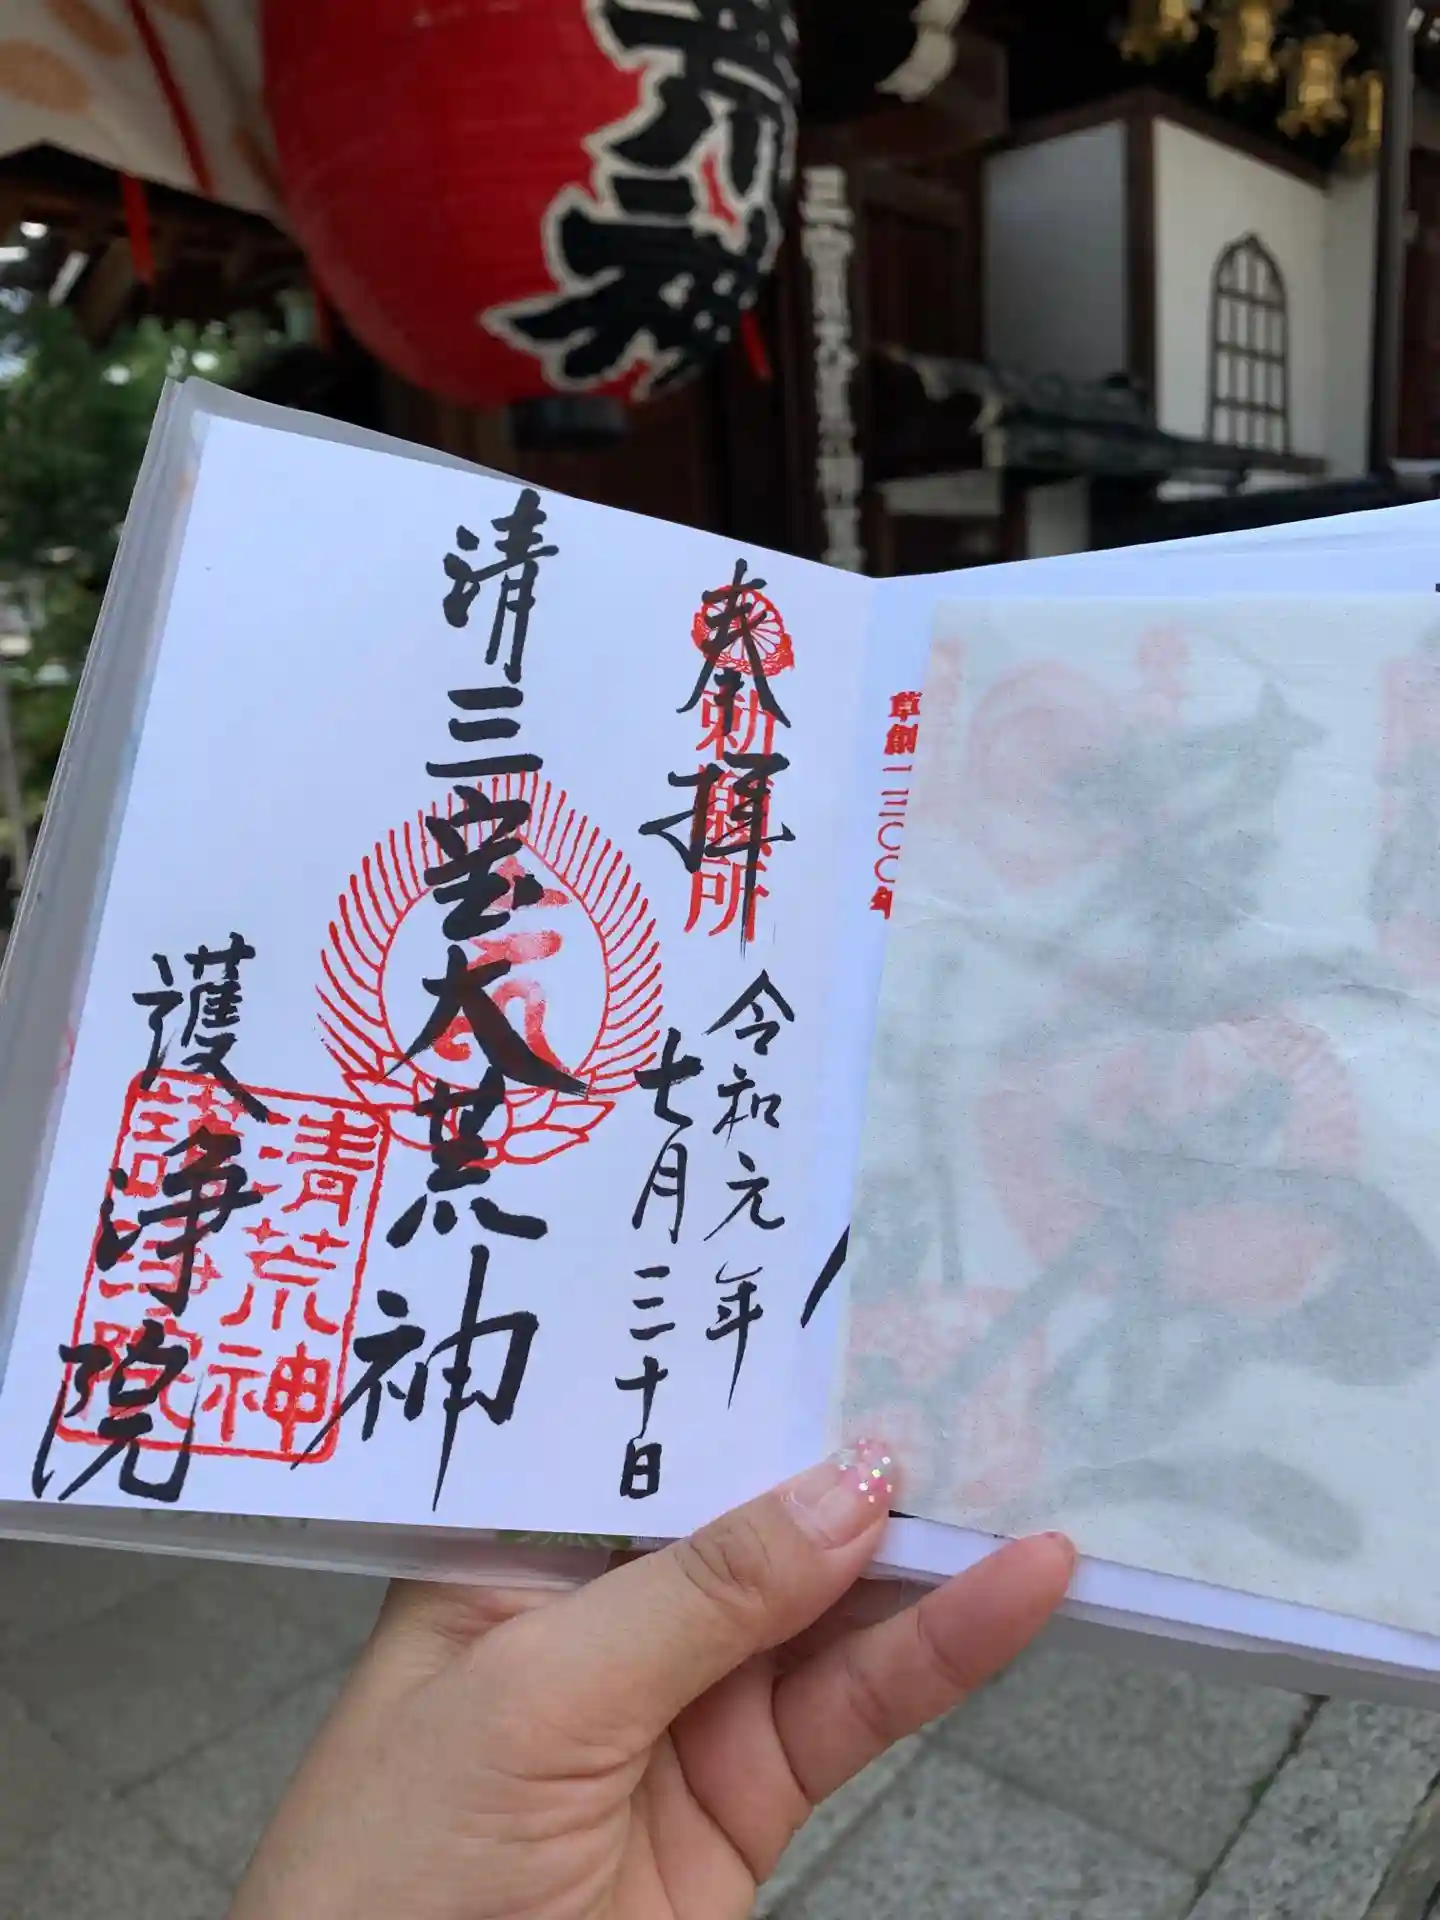 奉拝
勅願所
令和元年
七月三十日
清三宝大荒神
清荒神
護浄院
護浄院
草創一三〇〇年